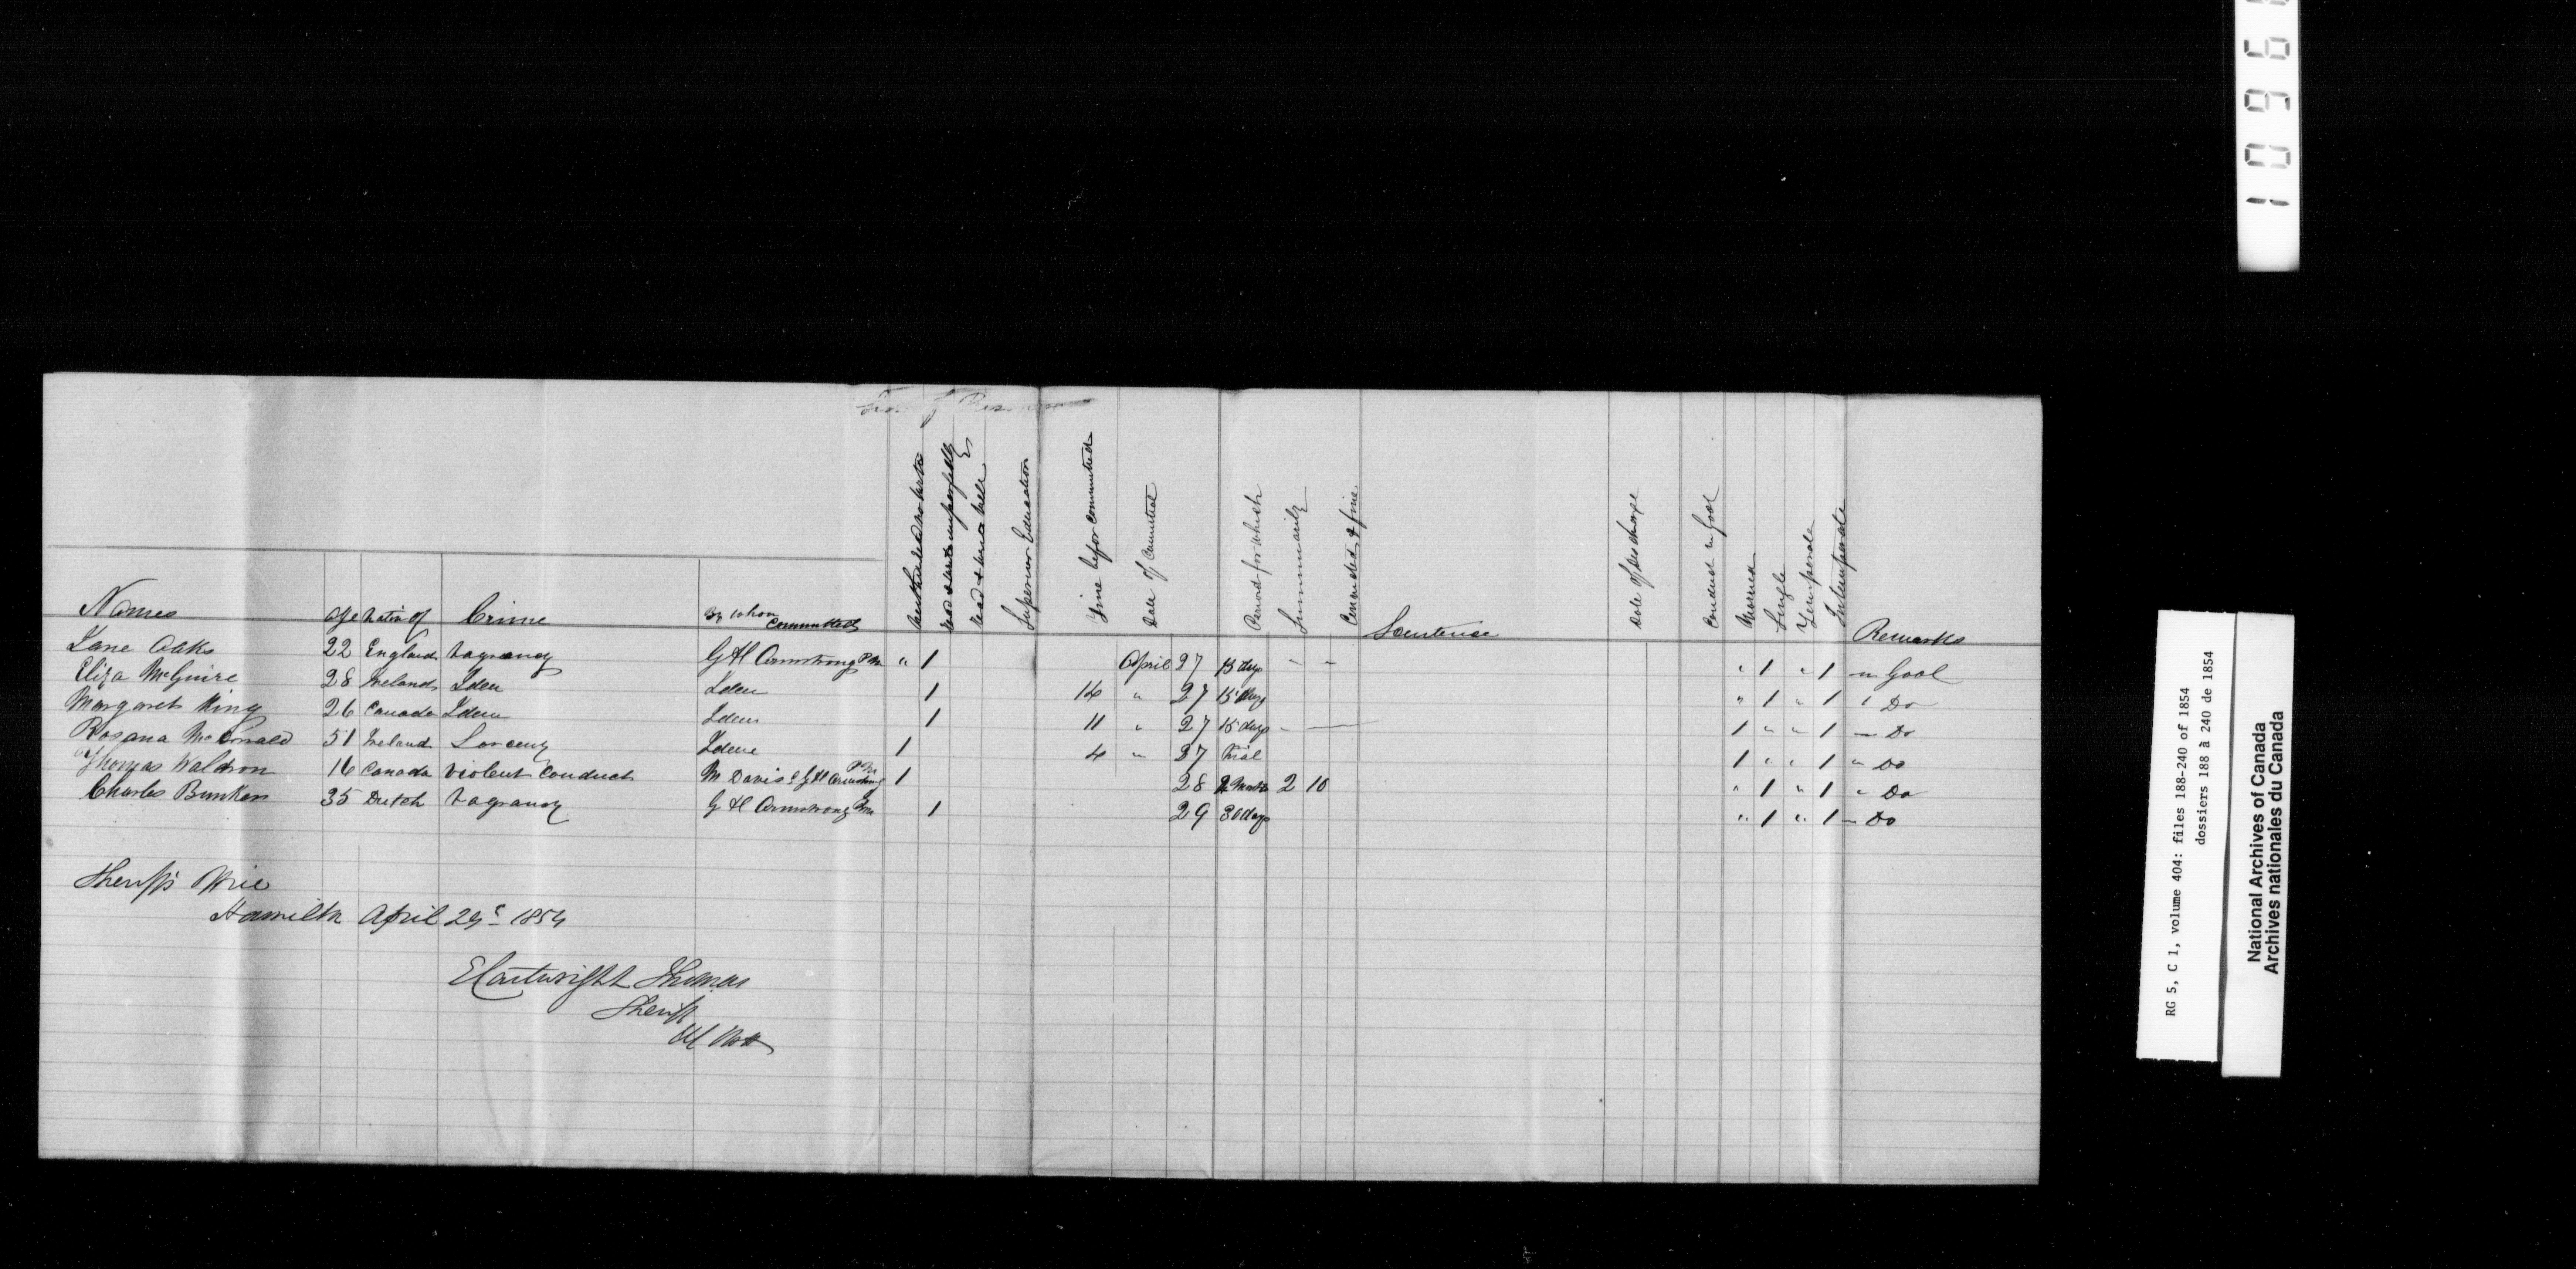 Names Age Native of Crime By whom Committed Neither read nor write Read & write imperfectly Read & write well Superior Education Time before committed Date of Committal Period for which Summarily Committed & fine Sentence Date of Discharge Conduct in Gaol Married Single Temperate Intemperate Remarks
Jane Oaks 22 England Vagrancy G H Armstrong PM " 1 April 27 15 days - - " 1 " 1 in Gaol
Eliza McGuire 28 Ireland Idem Idem 1 14 " 27 15 days " 1 " 1 " Do
Margaret King 26 Canada Idem Idem 1 11 " 27 15 days - - 1 " " 1 - Do
Rosana McDonald 51 Ireland Larceny Idem 1 4 " 27 Trial 1 " " 1 " Do
Thomas Waldron 16 Canada Violent Conduct M Davis & G H Armstrong PM 1 28 2 Months 2 10 " 1 " 1 " Do
Charles Bunker 35 Dutch Vagrancy G H Armstrong PM 1 29 30 days " 1 " 1 - Do
Sheriff's Office
Hamilton April 29 1854
E Cartwright Thomas
Sheriff
10961
RG 5, C 1, volume 404: files 188-240 of 1854
dossiers 188 à 240 de 1854
National Archives of Canada
Archives nationales du Canada